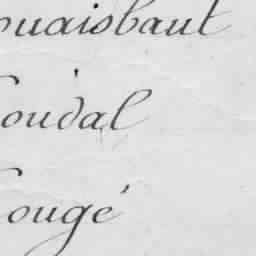 ouaisbaut
oudal
ougé